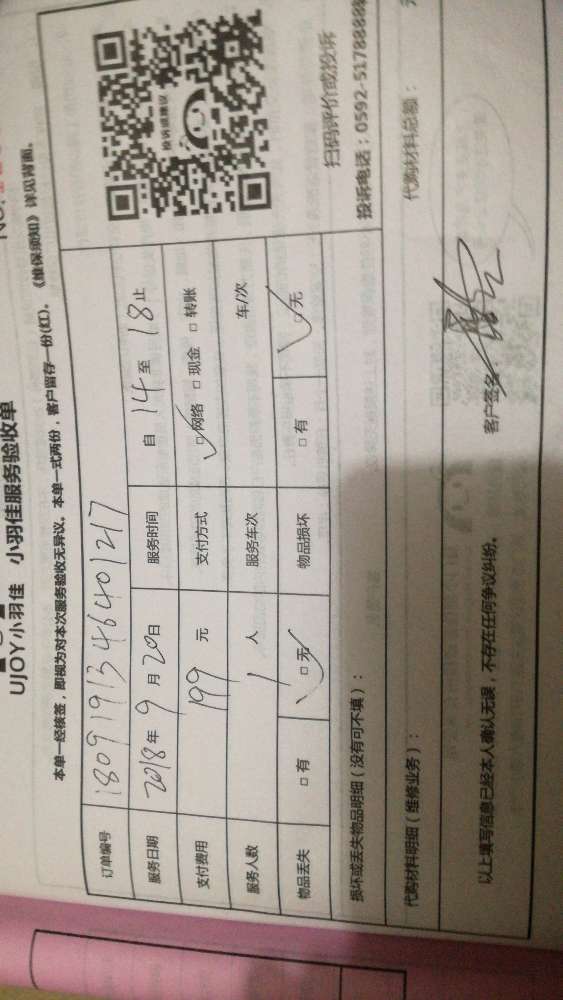 UJOY小羽佳 小羽佳服务验收单
NO.
本单一经核签，即视为对本次服务验收无异议。本单一式两份，客户留存一份(红)。《维保须知》详见背面。
订单编号 18091913464401217
服务日期 2018年9月20日 服务时间 自14至18止
支付费用 199元 支付方式 ☑网络 □现金 □转账
服务人数 1人 服务车次 车/次
物品丢失 □有 ☑无 物品损坏 □有 ☑无
投诉或建议
扫码评价或投诉
投诉电话：0592-5178888
损坏或丢失物品明细（没有可不填）：
代购材料明细（维修业务）： 代购材料总额：
以上填写信息已经本人确认无误，不存在任何争议纠纷。 客户签名：